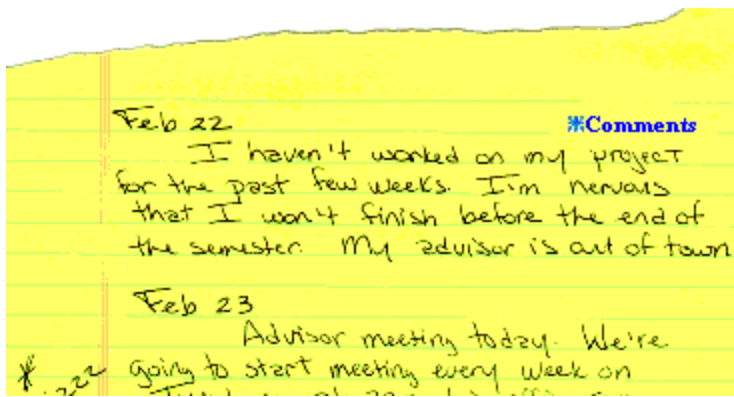 Feb 22
*Comments
I haven't worked on my project
for the past few weeks. I'm nervous
that I won't finish before the end of
the semester. My advisor is out of town
Feb 23
Advisor meeting today. We're
going to start meeting every week on